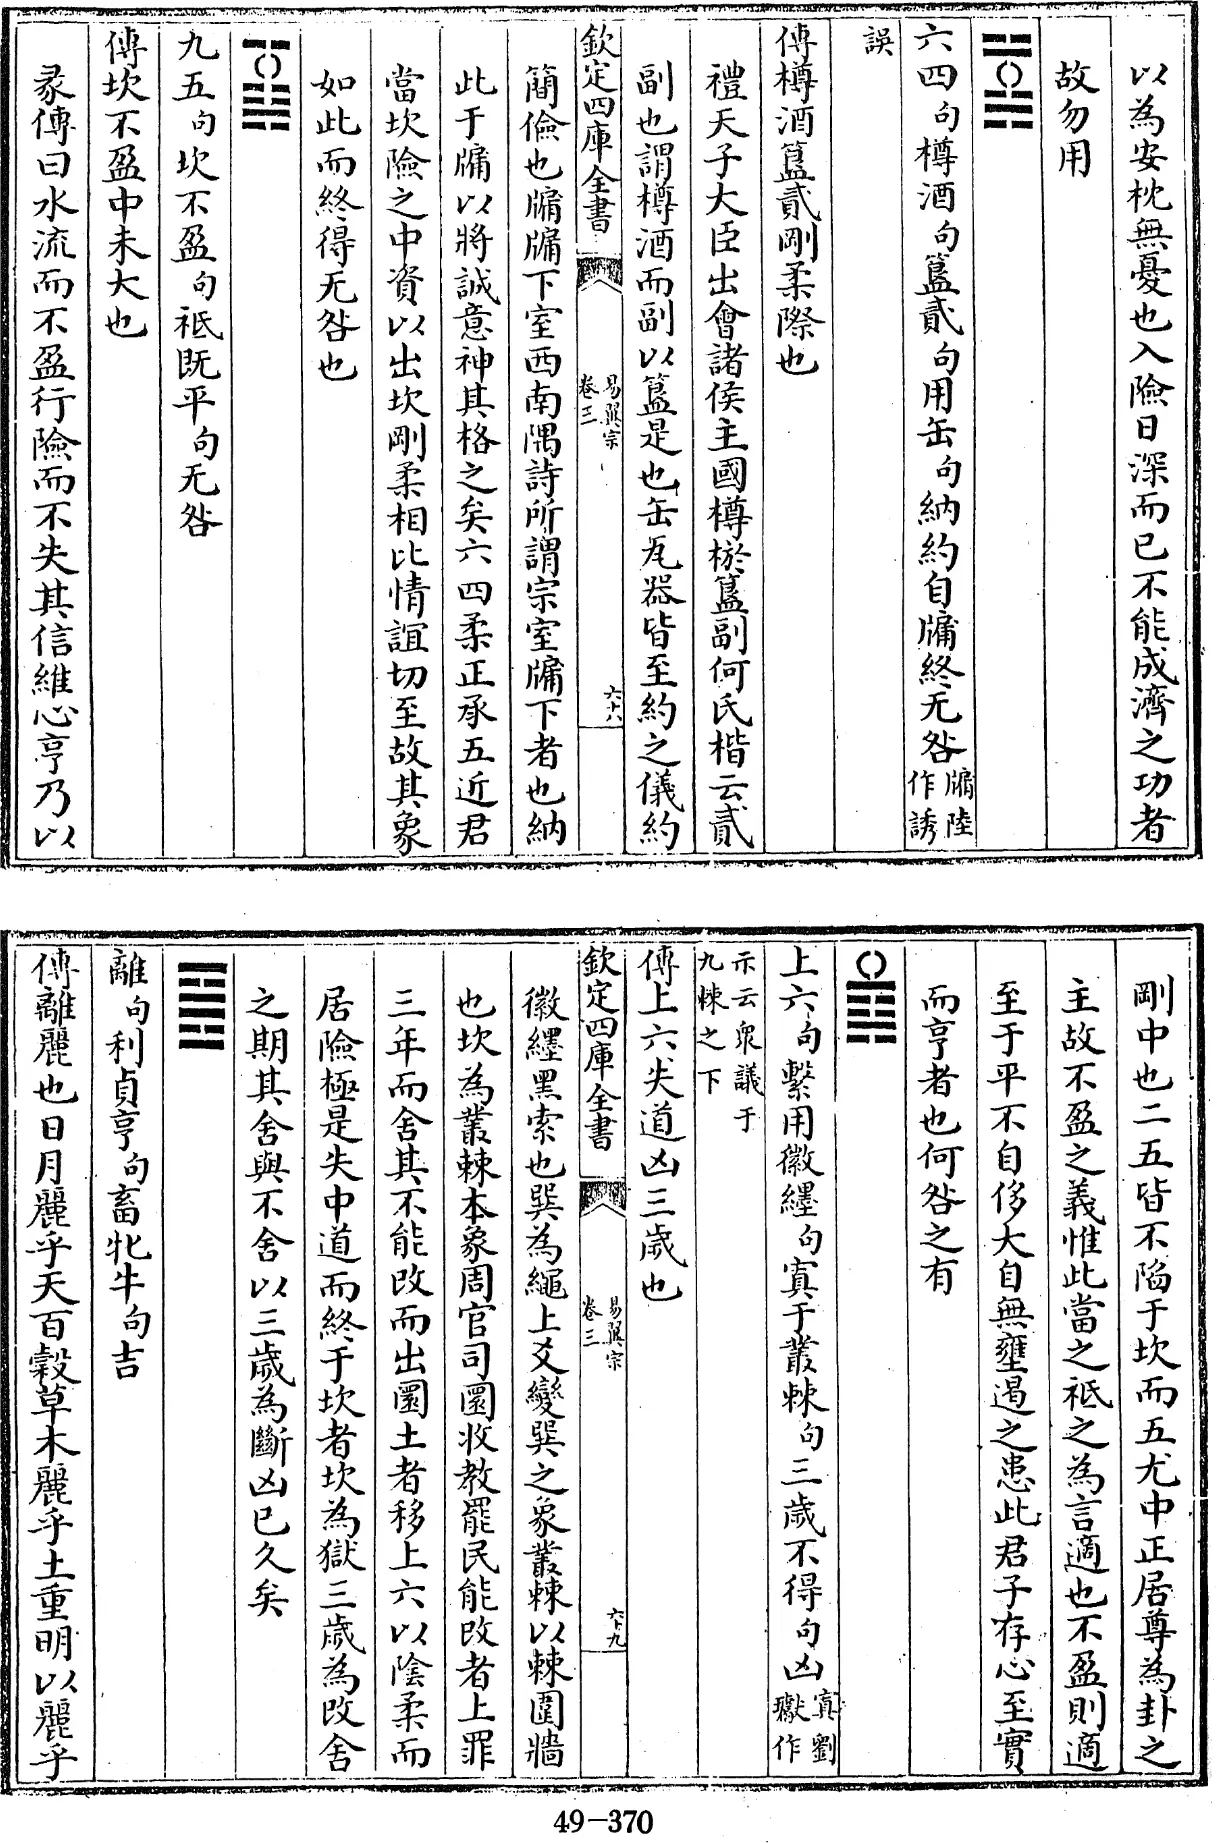 以為安枕無憂也入險日深而已不能成濟之功者
故勿用
六四句樽酒句簋貳句用缶句納約自牖終无咎牖陸作誘
誤
傳樽酒簋貳剛柔際也
禮天子大臣出會諸侯主國樽棜簋副何氏楷云貳
副也謂樽酒而副以簋是也缶瓦器皆至約之儀約
欽定四庫全書
易翼宗
卷三
六十八
簡儉也牖牖下室西南隅詩所謂宗室牖下者也納
此于牖以將誠意神其格之矣六四柔正承五近君
當坎險之中資以出坎剛柔相比情誼切至故其象
如此而終得无咎也
九五句坎不盈句祗既平句无咎
傳坎不盈中未大也
彖傳曰水流而不盈行險而不失其信維心亨乃以
剛中也二五皆不陷于坎而五尤中正居尊為卦之
主故不盈之義惟此當之祗之為言適也不盈則適
至于平不自侈大自無壅遏之患此君子存心至實
而亨者也何咎之有
上六句繫用徽纆句寘于叢棘句三歲不得句凶寘劉獻作
示云衆議于九棘之下
傳上六失道凶三歲也
欽定四庫全書
易翼宗
卷三
六十九
徽纆黑索也巽為繩上爻變巽之象叢棘以棘圍牆
也坎為叢棘本象周官司圜收教罷民能改者上罪
三年而舍其不能改而出圜土者移上六以陰柔而
居險極是失中道而終于坎者坎為獄三歲為改舍
之期其舍與不舍以三歲為斷凶已久矣
離句利貞亨句畜牝牛句吉
傳離麗也日月麗乎天百穀草木麗乎土重明以麗乎
49-370